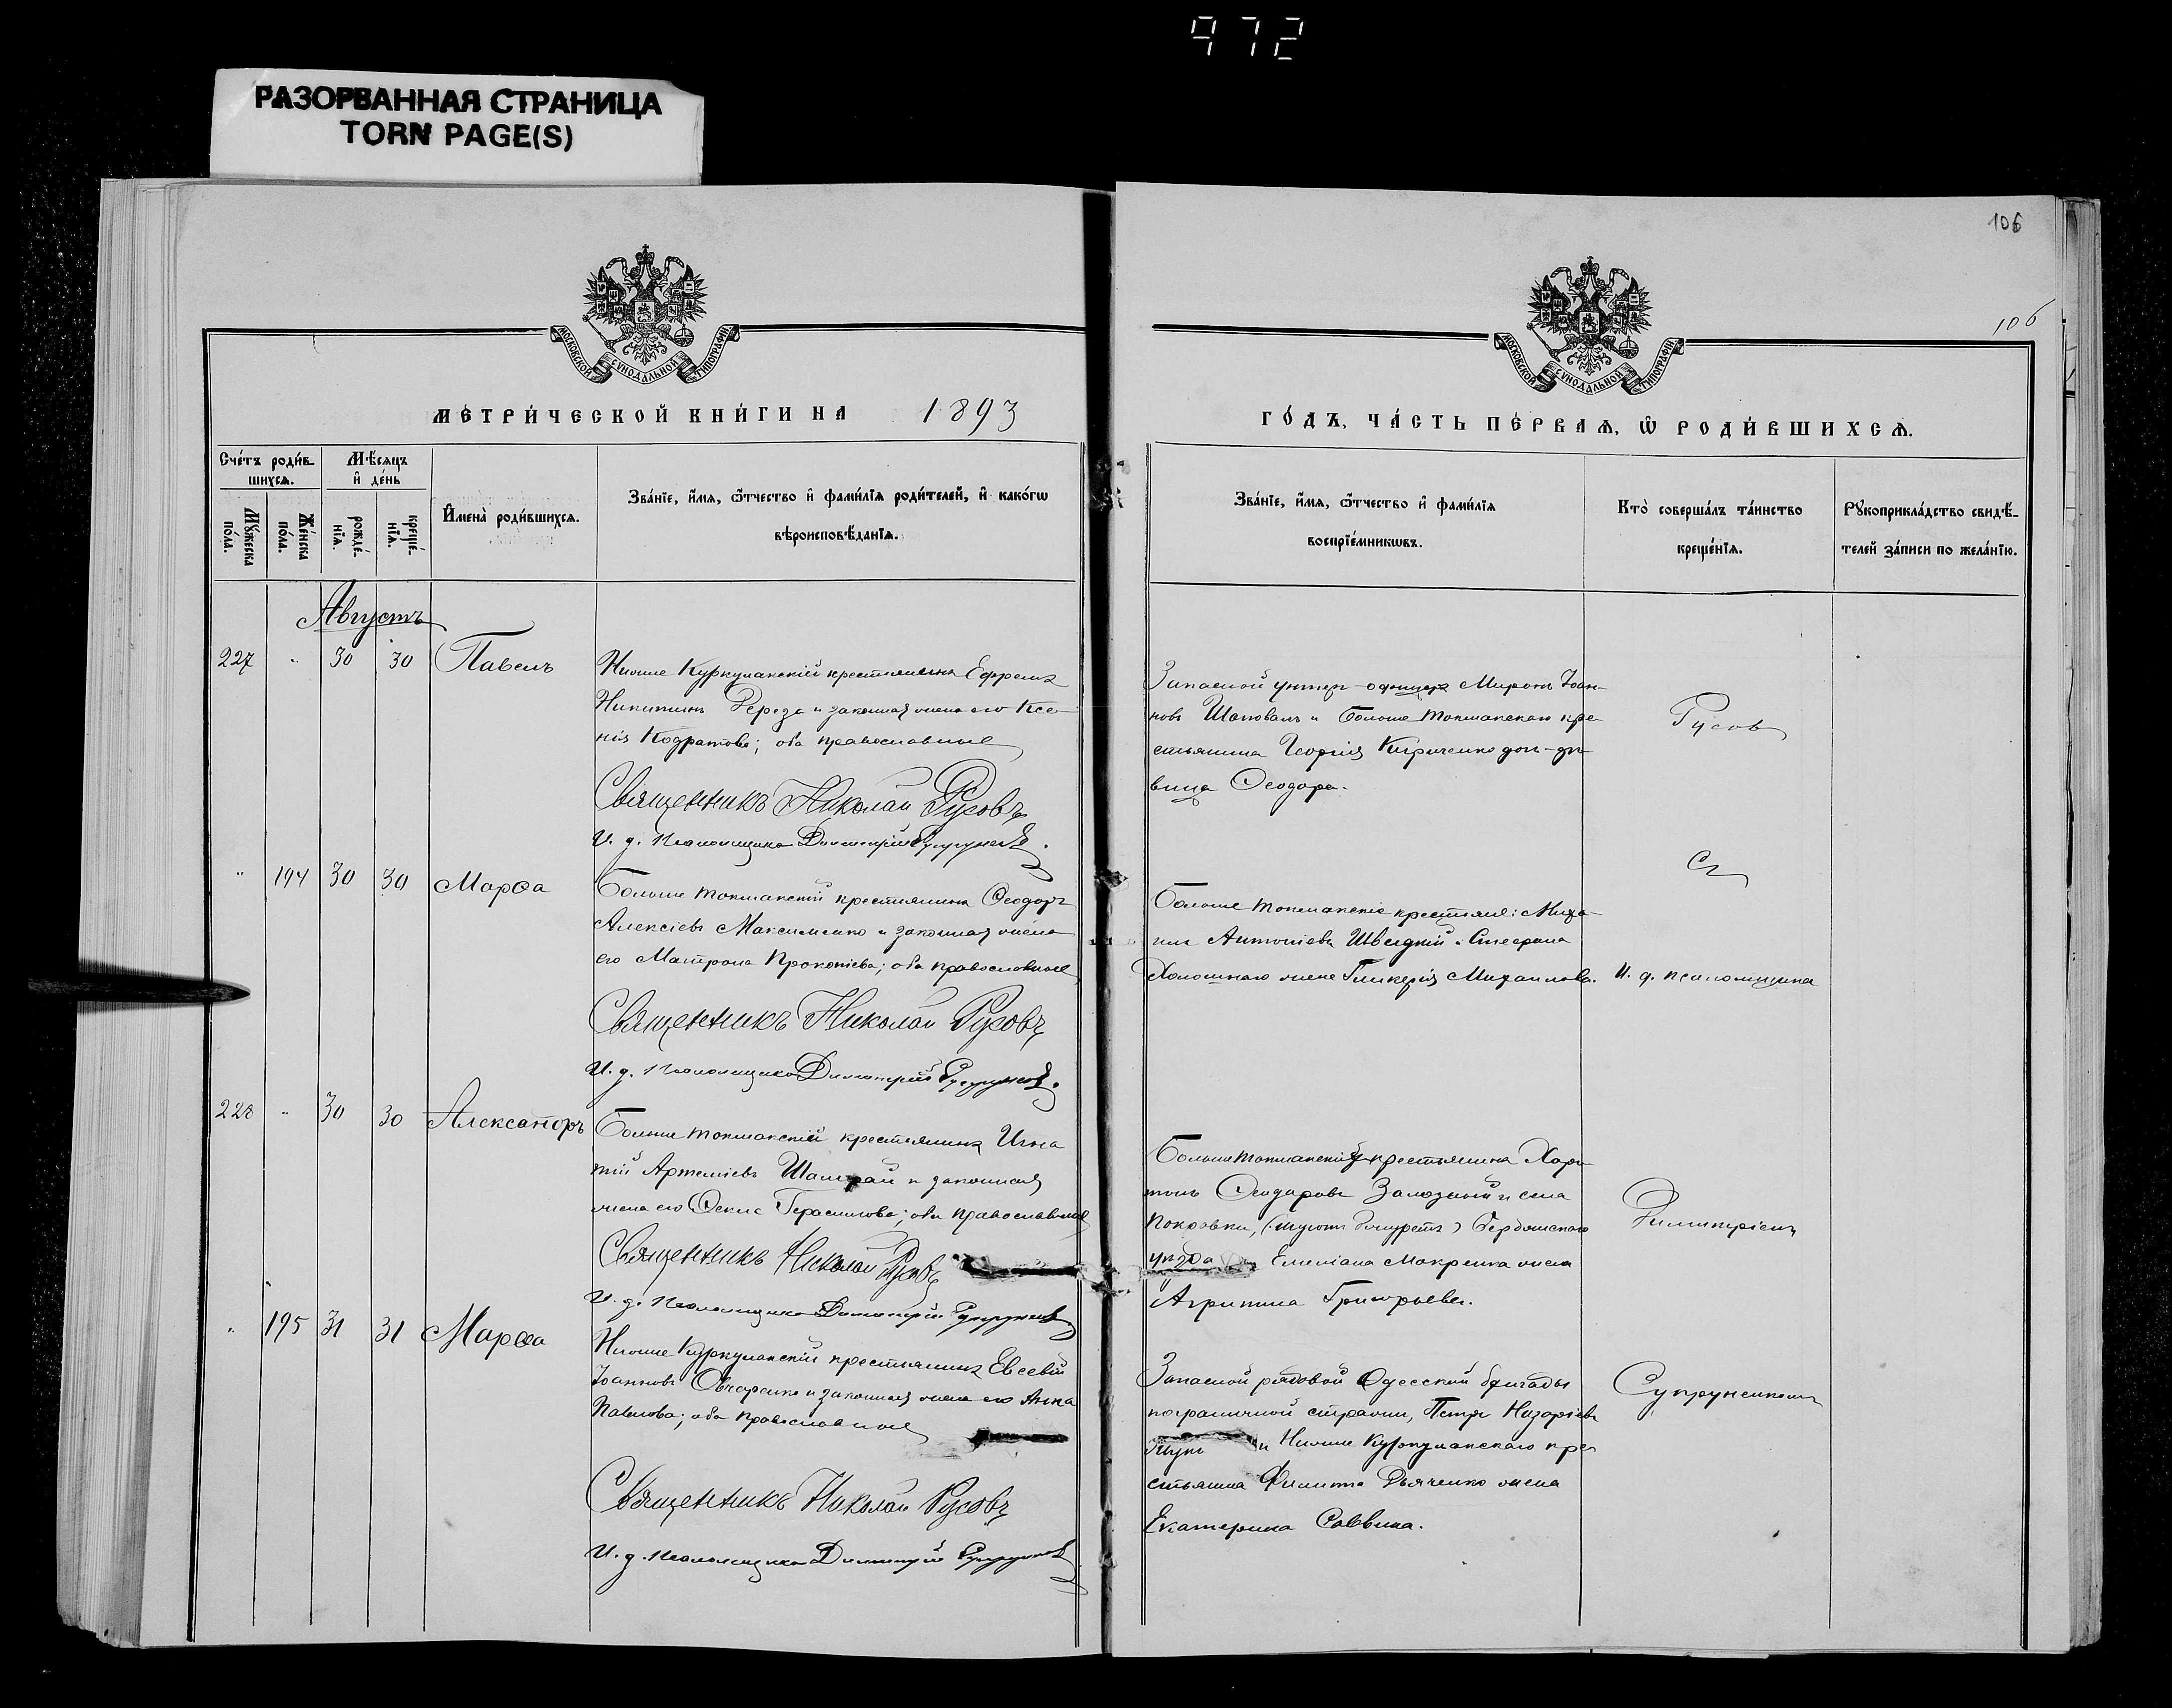 972
РАЗОРВАННАЯ СТРАНИЦА
TORN PAGE(S)
106
106
МОСКОВСКОЙ СУНОДАЛЬНОЙ ТИПОГРАФІИ
МОСКОВСКОЙ СУНОДАЛЬНОЙ ТИПОГРАФІИ
МЕТРИ́ЧЕСКОЙ КНИ́ГИ НА 1893
ГО́ДЪ, ЧА́СТЬ ПЕ́РВАѦ, Ѡ҆ РОДИ́ВШИХСѦ.
Сче́тъ роди́в-
шихсѧ.
Мꙋ́жеска по́ла.
Же́нска по́ла.
Мѣ́сѧцъ
и҆ де́нь
рожде́-
нїѧ.
креще́-
нїѧ.
И҆мена̀ роди́вшихсѧ.
Зва́нїе, и҆́мѧ, ѻ҆́тчество и҆ фами́лїѧ роди́телей, и҆ како́гѡ
вѣроисповѣ́данїѧ.
Зва́нїе, и҆́мѧ, ѻ҆́тчество и҆ фами́лїѧ
воспрїе́мникѡвъ.
Кто̀ соверша́лъ та́инство
креще́нїѧ.
Рꙋкоприкла́дство свидѣ́-
телей за́писи по жела́нїю.
Августъ
227 " 30 30 Павелъ
Нижне Куркулакскій крестьянинъ Ефремъ
Никитинъ Береза и законная жена его Ксе-
нія Кодратова; оба православные
Священникъ Николай Русовъ
И. д. псаломщика Димитрій Супруненко.
Запасной унтеръ-офицеръ Миронъ Іоан-
новъ Шаповалъ и Больше Токмакскаго кре-
стьянина Георгія Кириченко дочь-дѣ-
вица Ѳеодора.
Русов
" 194 30 30 Марѳа
Больше Токмакскій крестьянинъ Ѳеодоръ
Алексіевъ Максименко и законная жена
его Матрона Прокопіева; оба православные
Священникъ Николай Русовъ
И. д. псаломщика Димитрій Супруненко.
Больше Токмакскіе крестьяне: Миха-
илъ Антоніевъ Швидкій и Стефана
жена Гликерія Михаилова.
Съ
И. д. псаломщика
228 " 30 30 Александръ
Больше Токмакскій крестьянинъ Игна-
тій Артеміевъ Шамрай и законная
жена его Ѳекла Герасимова; оба православные
Священникъ Николай Русовъ
И. д. псаломщика Димитрій Супруненко
Больше Токмакскій крестьянинъ Хари-
тонъ Ѳеодоровъ Залозный и села
Покровки, Бердянскаго
уѣзда Емеліана Мокренка жена
Агрипина Григорьева.
Димитріемъ
" 195 31 31 Марѳа
Нижне Куркулакскій крестьянинъ Евсевій
Іоанновъ Овчаренко и законная жена его Анна
Павлова; оба православные
Священникъ Николай Русовъ
И. д. псаломщика Димитрій Супруненко
Запасной рядовой Одесской бригады
пограничной стражи, Петръ Назаріевъ
и Нижне Куркулакскаго кре-
стьянина Филиппа Дьяченко жена
Екатерина Саввина.
Супруненкомъ